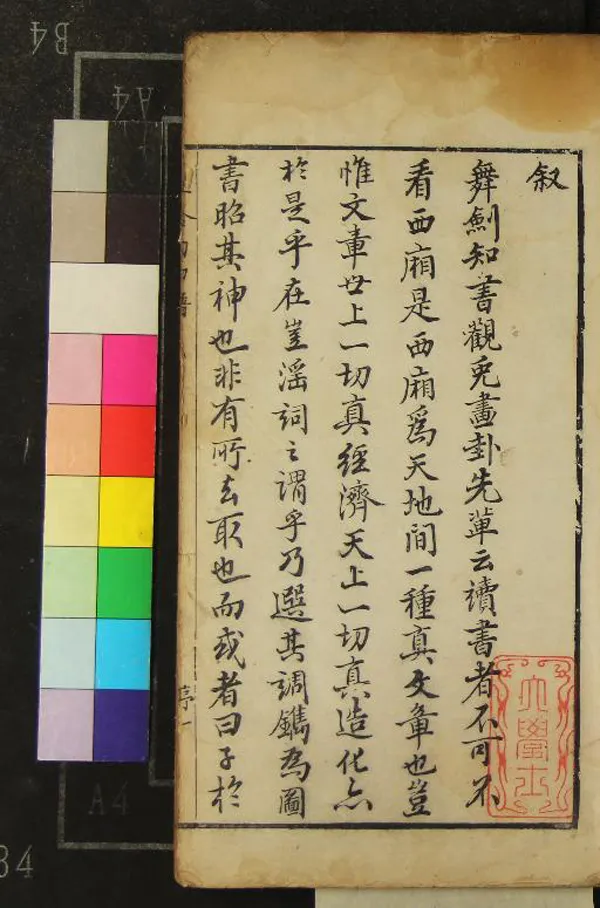 叙
舞劍知書觀兎畫卦先輩云讀書者不可不
看西廂是西廂爲天地間一種真文章也豈
惟文章世上一切真經濟天上一切真造化亦
於是乎在豈滛詞之謂乎乃選其調鐫為圖
書昭其神也非有所去取也而或者曰子於
序一
大學士
B4
A4
A4
B4